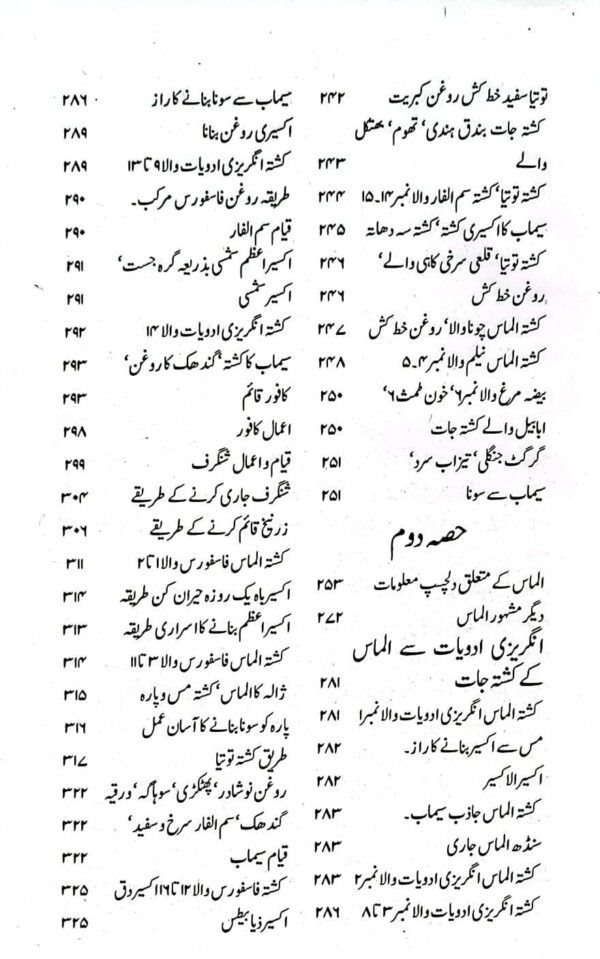 توتیا سفید خط کش روغن کبریت ۲۴۲
کشتہ جات بندق ہندی‘ تھوم‘ بھتکل
والے ۲۴۳
کشتہ توتیا‘ کشتہ سم الفار والا نمبر ۱۴۔۱۵ ۲۴۴
سیماب کا اکسیری کشتہ‘ کشتہ سہ دھاتہ ۲۴۵
کشتہ توتیا‘ قلعی سرخی کاہی والے‘ ۲۴۶
روغن خط کش ۲۴۶
کشتہ الماس چونا والا‘ روغن خط کش ۲۴۷
کشتہ الماس نیلم والا نمبر ۴۔۵ ۲۴۸
بیضہ مرغ والا نمبر ۶‘ خون طمث ۶‘ ۲۵۰
ابابیل والے کشتہ جات ۲۵۰
گرگٹ جنگلی‘ تیزاب سرد‘ ۲۵۱
سیماب سے سونا ۲۵۱
حصہ دوم
الماس کے متعلق دلچسپ معلومات ۲۵۳
دیگر مشہور الماس ۲۷۲
انگریزی ادویات سے الماس
کے کشتہ جات ۲۸۱
کشتہ الماس انگریزی ادویات والا نمبر۱ ۲۸۱
مس سے اکسیر بنانے کا راز۔ ۲۸۲
اکسیر الاکسیر ۲۸۲
کشتہ الماس جاذب سیماب۔ ۲۸۳
سنڈھ الماس جاری ۲۸۳
کشتہ الماس انگریزی ادویات والا نمبر۲ ۲۸۳
کشتہ انگریزی ادویات والا نمبر ۳ تا ۸ ۲۸۶
سیماب سے سونا بنانے کا راز ۲۸۶
اکسیری روغن بنانا ۲۸۹
کشتہ انگریزی ادویات والا ۹ تا ۱۳ ۲۸۹
طریقہ روغن فاسفورس مرکب۔ ۲۹۰
قیام سم الفار ۲۹۰
اکسیر اعظم شمسی بذریعہ گرہ جست‘ ۲۹۱
اکسیر شمسی ۲۹۱
کشتہ انگریزی ادویات والا ۱۴ ۲۹۲
سیماب کا کشتہ‘ گندھک کا روغن‘ ۲۹۳
کافور قائم ۲۹۳
اعمال کافور ۲۹۸
قیام و اعمال شنگرف ۲۹۹
شنگرف جاری کرنے کے طریقے ۳۰۴
زرنیخ قائم کرنے کے طریقے ۳۰۶
کشتہ الماس فاسفورس والا ۱ تا ۲ ۳۱۱
اکسیر باہ یک روزہ حیران کن طریقہ ۳۱۴
اکسیر اعظم بنانے کا اسراری طریقہ ۳۱۳
کشتہ الماس فاسفورس والا ۳ تا ۱۱ ۳۱۴
ژالہ کا الماس‘ کشتہ مس و پارہ ۳۱۵
پارہ کو سونا بنانے کا آسان عمل ۳۱۶
طریق کشتہ توتیا ۳۱۷
روغن نوشادر‘ پھٹکڑی‘ سوہاگہ‘ ورقیہ ۳۲۲
گندھک‘ سم الفار سرخ و سفید‘ ۳۲۲
قیام سیماب ۳۲۲
کشتہ فاسفورس والا ۱۲ تا ۱۶ اکسیر دق ۳۲۵
اکسیر ذیابیطس ۳۲۵